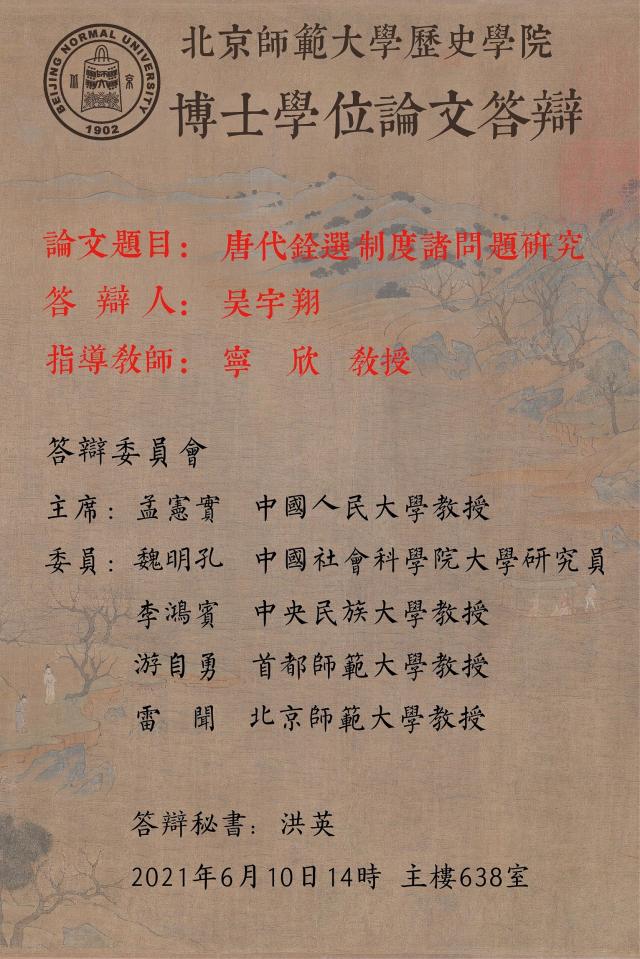 BEIJING NORMAL UNIVERSITY
1902
北京師範大學歷史學院
博士學位論文答辯
論文題目：唐代銓選制度諸問題研究
答辯人：吴宇翔
指導教師：寧欣 教授
答辯委員會
主席：孟憲實 中國人民大學教授
委員：魏明孔 中國社會科學院大學研究員
李鴻賓 中央民族大學教授
游自勇 首都師範大學教授
雷聞 北京師範大學教授
答辯秘書：洪英
2021年6月10日14時 主樓638室